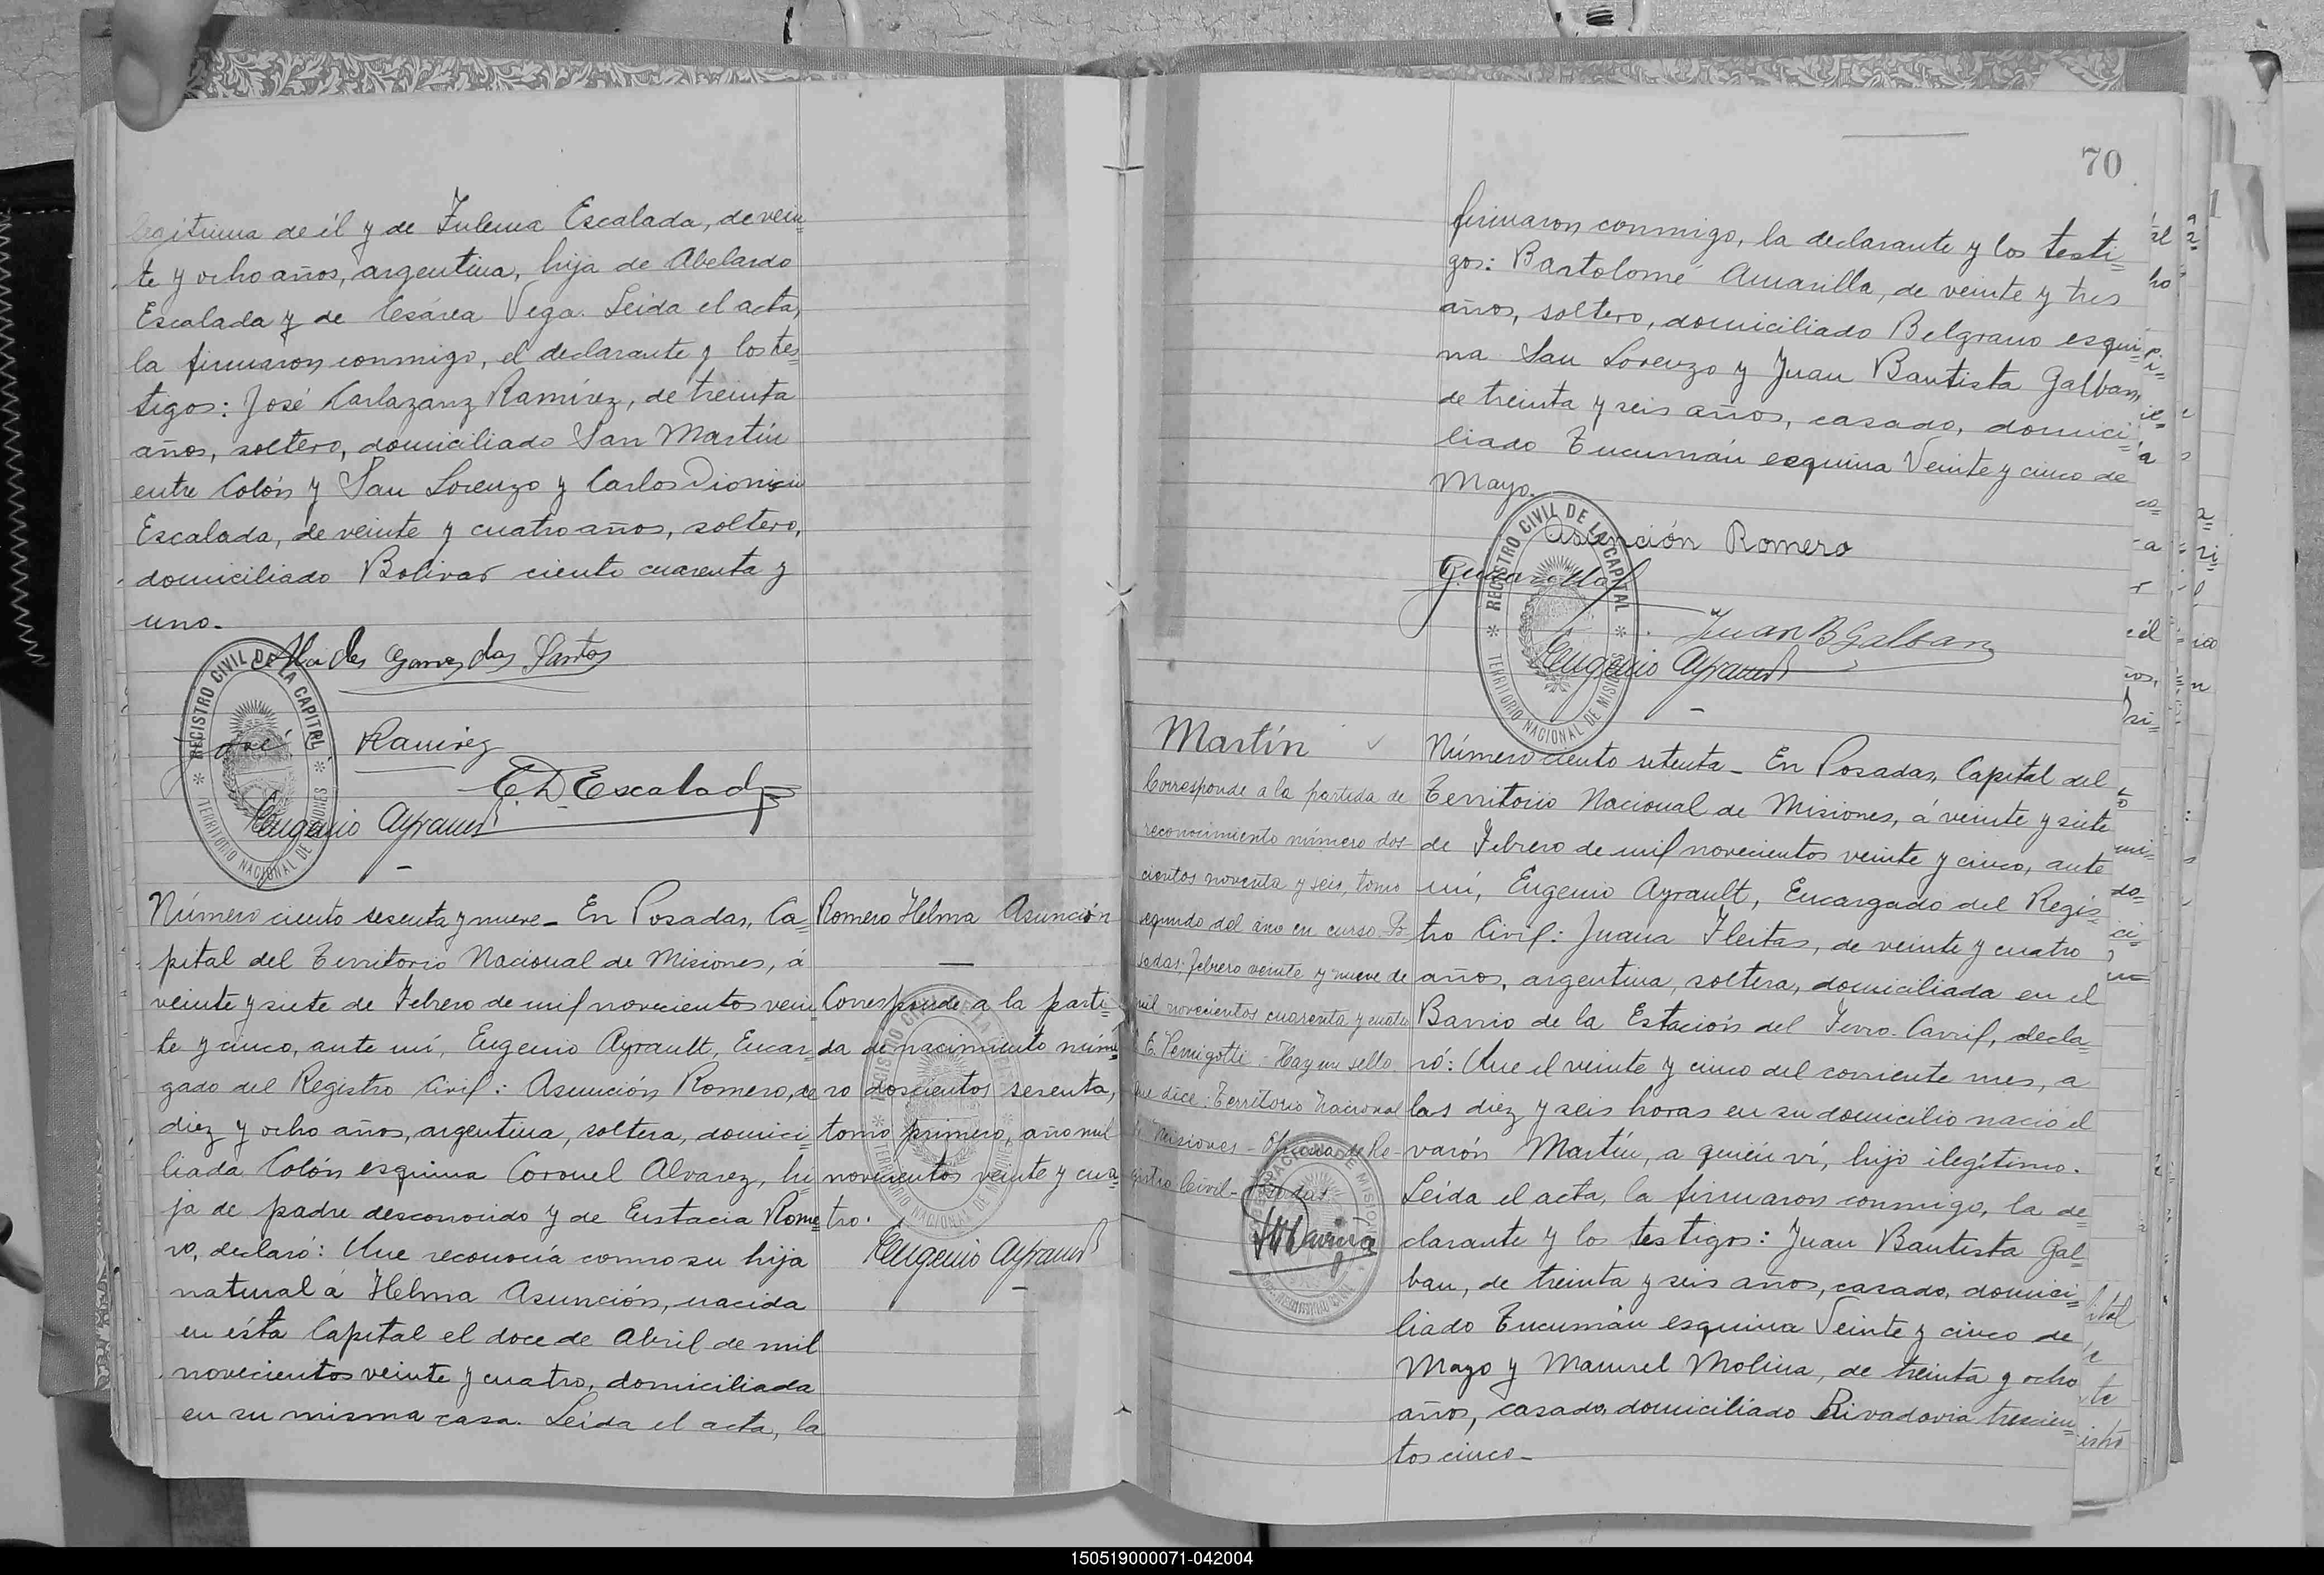 legítima de él y de Zulema Escalada, de vein=
te y ocho años, argentina, hija de Abelardo
Escalada y de Cesárea Vega. Leída el acta,
la firmaron conmigo, el declarante y los tes=
tigos: José Carlazanz Ramírez, de treinta
años, soltero, domiciliado San Martín
entre Colón y San Lorenzo y Carlos Dionicio
Escalada, de veinte y cuatro años, soltero,
domiciliado Bolivar ciento cuarenta y
uno.
dos Santos
José Ramirez
C. D. Escalada
Eugenio Ayrault
REGISTRO CIVIL DE LA CAPITAL
TERRITORIO NACIONAL DE MISIONES
Número ciento sesenta y nueve_ En Posadas, Ca=
pital del Territorio Nacional de Misiones, á
veinte y siete de Febrero de mil novecientos vein=
te y cinco, ante mí, Eugenio Ayrault, Encar=
gado del Registro Civil: Asunción Romero, de
diez y ocho años, argentina, soltera, domici=
liada Colón esquina Coronel Alvarez, hi=
ja de padre desconocido y de Eustacia Rome=
ro, declaró: Que reconocía como su hija
natural á Helma Asunción, nacida
en ésta Capital el doce de Abril de mil
novecientos veinte y cuatro, domiciliada
en su misma casa. Leída el acta, la
Romero Helma Asunción
Corresponde a la parti=
da de nacimiento núme=
ro doscientos sesenta,
tomo primero, año mil
novecientos veinte y cua=
tro.
Eugenio Ayrault
REGISTRO CIVIL DE LA CAPITAL
TERRITORIO NACIONAL DE MISIONES
70
firmaron conmigo, la declarante y los testi=
gos: Bartolomé Amarilla, de veinte y tres
años, soltero, domiciliado Belgrano esqui=
na San Lorenzo y Juan Bautista Galban,
de treinta y seis años, casado, domici=
liado Tucumán esquina Veinte y cinco de
Mayo.
Asunción Romero
Juan B Galban
Eugenio Ayrault
REGISTRO CIVIL DE LA CAPITAL
TERRITORIO NACIONAL DE MISIONES
Martín
Corresponde a la partida de
reconocimiento número dos-
cientos noventa y seis, tomo
segundo del año en curso. Po-
sadas febrero veinte y nueve de
mil novecientos cuarenta y cuatro
E. Pernigotti - Hay un sello
que dice: Territorio Nacional
de Misiones - Oficina de Re-
gistro Civil - Posadas
Número ciento setenta_ En Posadas, Capital del
Territorio Nacional de Misiones, á veinte y siete
de Febrero de mil novecientos veinte y cinco, ante
mí, Eugenio Ayrault, Encargado del Regis=
tro Civil: Juana Fleitas, de veinte y cuatro
años, argentina, soltera, domiciliada en el
Barrio de la Estación del Ferro-Carril, decla=
ró: Que el veinte y cinco del corriente mes, a
las diez y seis horas en su domicilio nació el
varón Martín, a quién ví, hijo ilegítimo.
Leída el acta, la firmaron conmigo, la de=
clarante y los testigos: Juan Bautista Gal=
ban, de treinta y seis años, casado, domici=
liado Tucumán esquina Veinte y cinco de
Mayo y Manuel Molina, de treinta y ocho
años, casado, domiciliado Rivadavia trescien=
tos cinco_
150519000071-042004